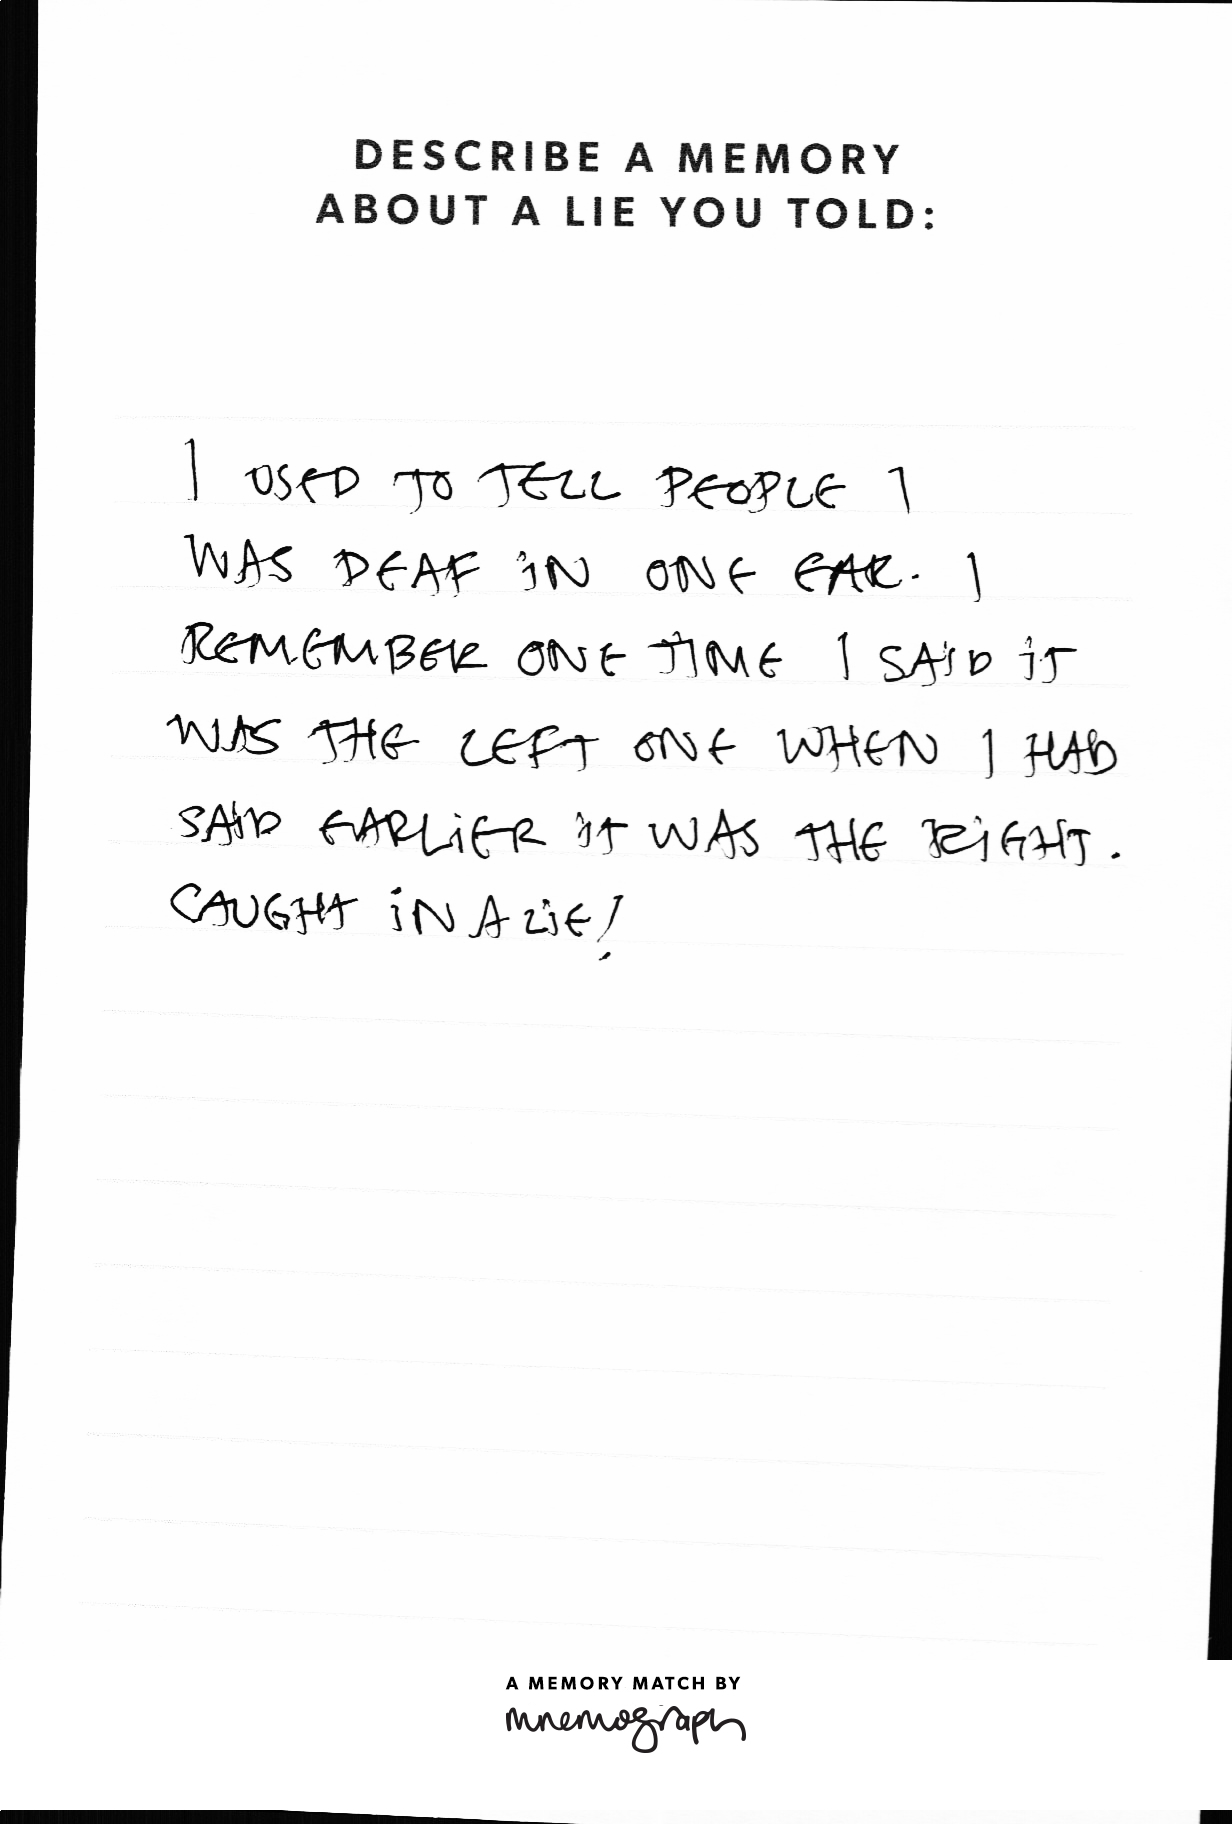 DESCRIBE A MEMORY
ABOUT A LIE YOU TOLD:
I USED TO TELL PEOPLE I
WAS DEAF iN ONE EAR. I
REMEMBER ONE TIME I SAiD iT
WAS THE LEFT ONE WHEN I HAD
SAiD EARLiER iT WAS THE RiGHT.
CAUGHT iN A LiE!
A MEMORY MATCH BY
mnemograph